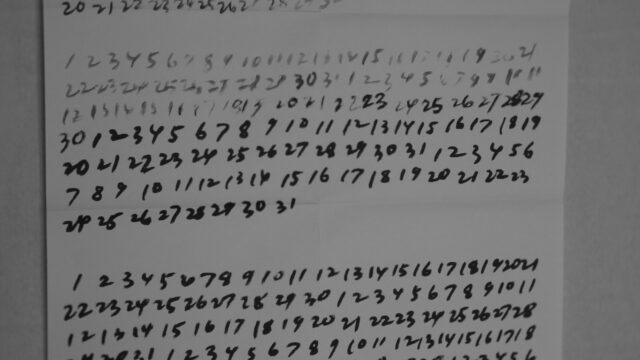 20 21 22 23 24 25 26 27 28 29 30
1 2 3 4 5 6 7 8 9 10 11 12 13 14 15 16 17 18 19 20 21
22 23 24 25 26 27 28 29 30 31 1 2 3 4 5 6 7 8 9 10 11
12 13 14 15 16 17 18 19 20 21 22 23 24 25 26 27 28 29
30 1 2 3 4 5 6 7 8 9 10 11 12 13 14 15 16 17 18 19
20 21 22 23 24 25 26 27 28 29 30 31 1 2 3 4 5 6
7 8 9 10 11 12 13 14 15 16 17 18 19 20 21 22 23
24 25 26 27 28 29 30 31
1 2 3 4 5 6 7 8 9 10 11 12 13 14 15 16 17 18 19 20 21
22 23 24 25 26 27 28 29 30 1 2 3 4 5 6 7 8 9 10 11
12 13 14 15 16 17 18 19 20 21 22 23 24 25 26 27 28
31 1 2 3 4 5 6 7 8 9 10 11 12 13 14 15 16 17 18